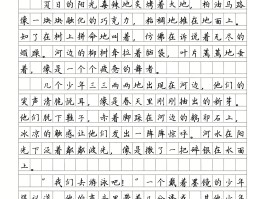 夏日的阳光毒辣地炙烤着大地，柏油马路
像一块块融化的巧克力，粘稠地摊在地面上。
知了在树上拼命地叫着，仿佛在诉说着无尽的
烦躁。河边的柳树耷拉着翅膀，叶片蔫蔫地垂
着，像是一个个疲惫的舞者。
几个少年三三两两地出现在河边，他们的
笑声清脆悦耳，像是春天里刚刚抽出的新芽。
他们脱下鞋子，赤着脚踩在河边的鹅卵石上，
冰凉的触感让他们发出一阵阵惊呼。河水在阳
光下泛着粼粼波光，像是撒了一把碎银在水面
上。
“我们去游泳吧！”一个戴着墨镜的少年